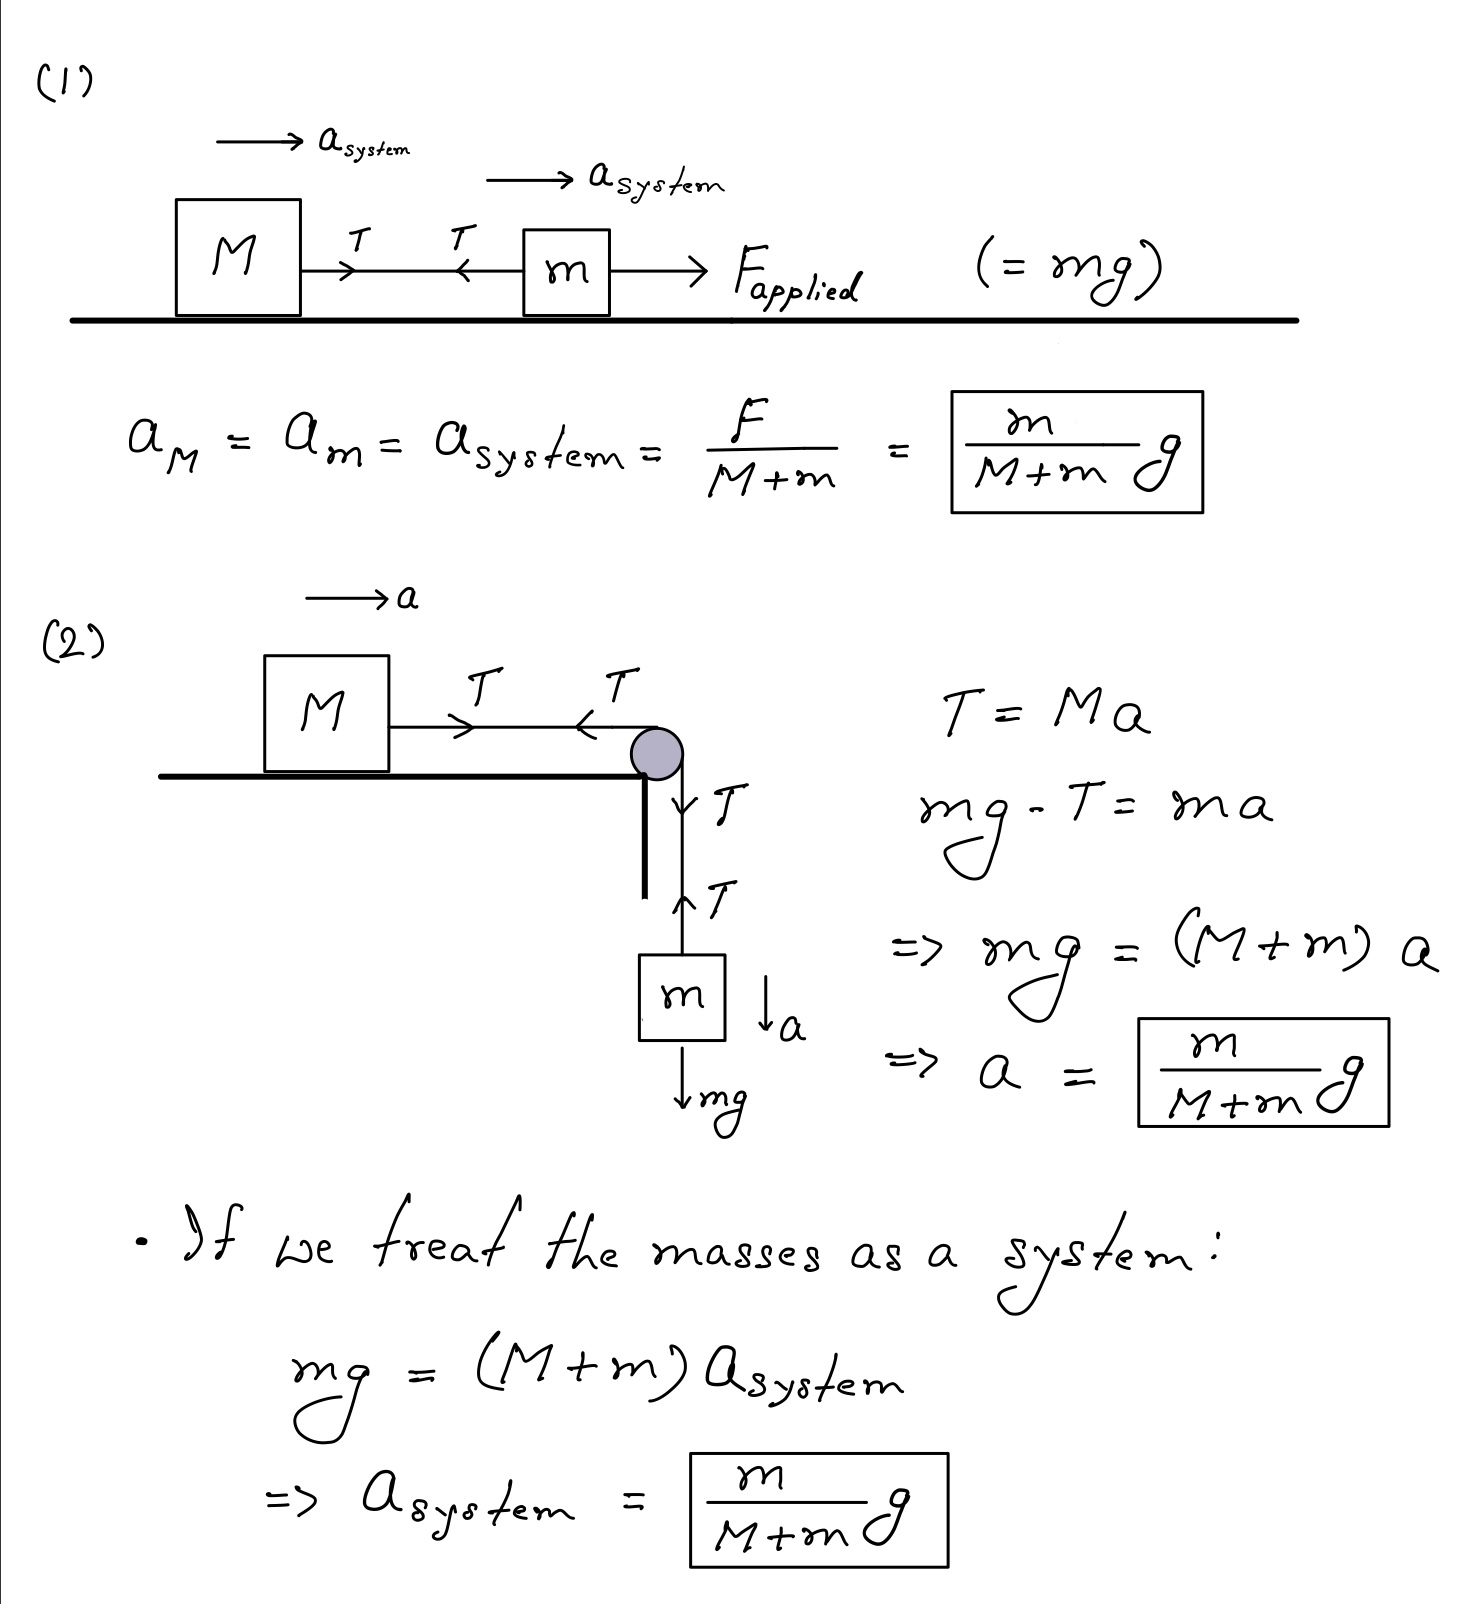 (1)
→ a_system
→ a_system
M T T m F_applied (= mg)
a_M = a_m = a_system = F/(M+m) = m/(M+m) g
(2)
→ a
M T T
T = Ma
T
mg - T = ma
T
=> mg = (M+m) a
m ↓ a
=> a = m/(M+m) g
mg
• If we treat the masses as a system:
mg = (M+m) a_system
=> a_system = m/(M+m) g